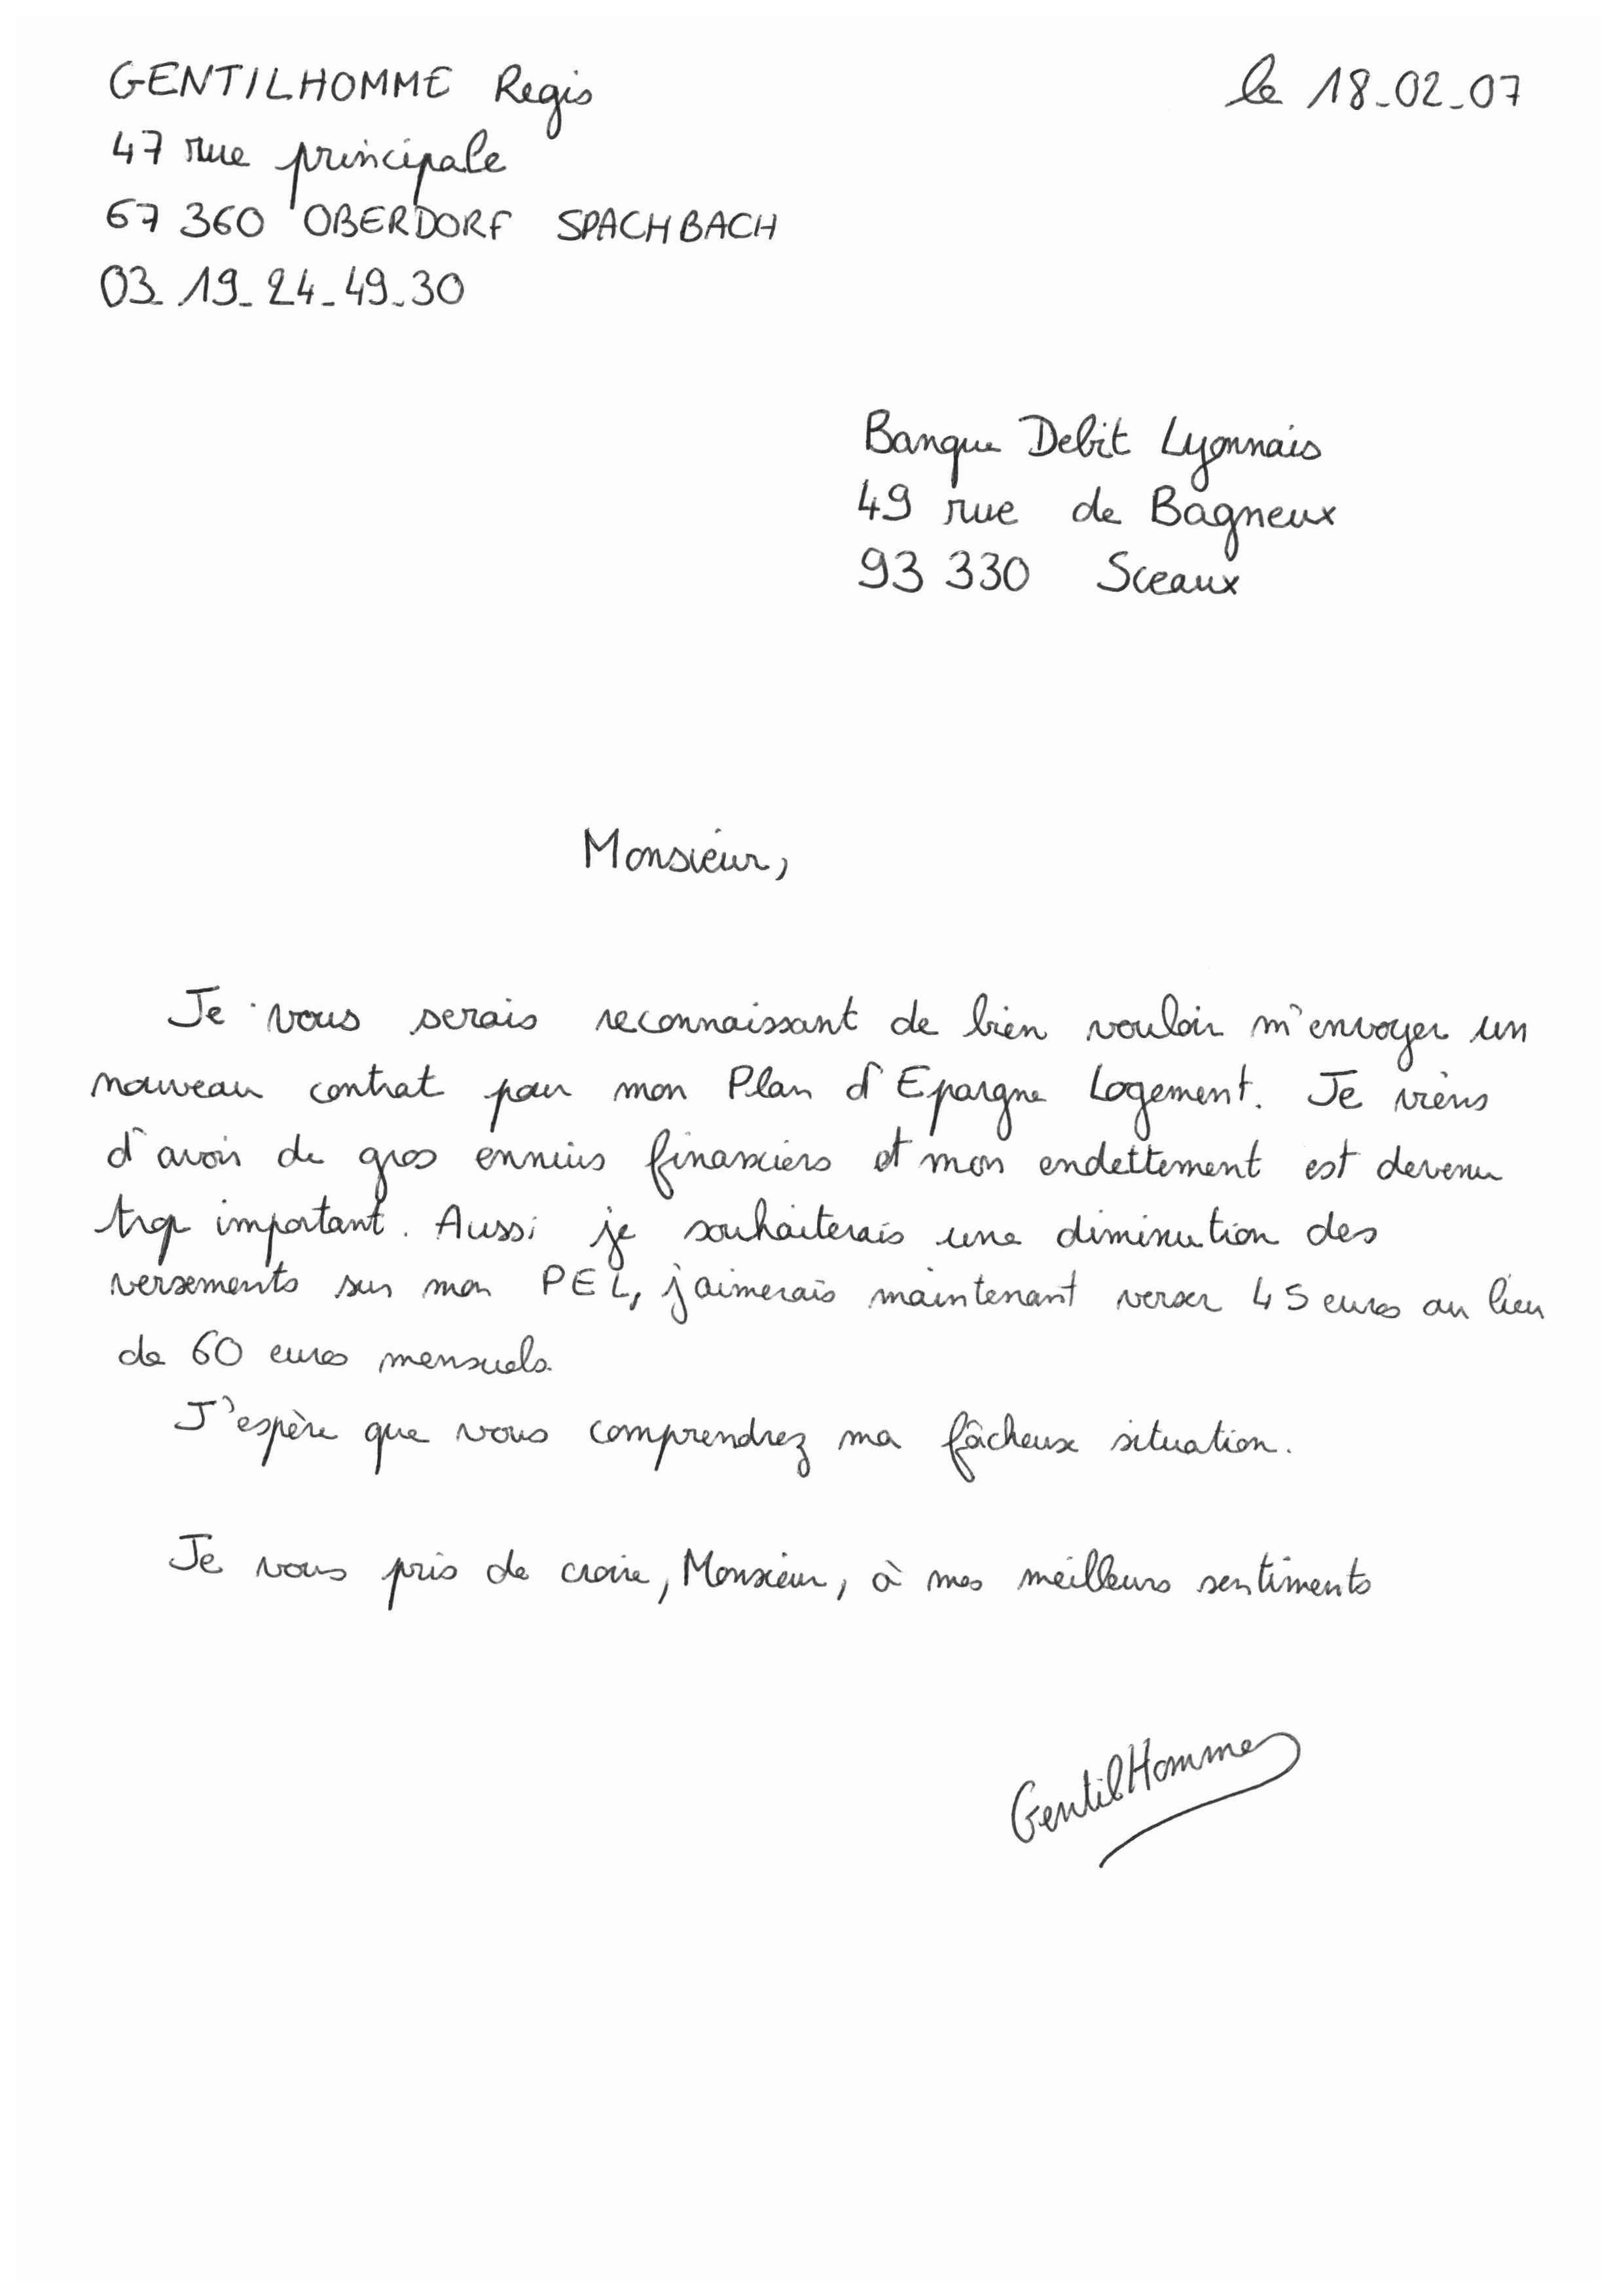 GENTILHOMME Regis
le 18-02-07
47 rue principale
67 360 OBERDORF SPACHBACH
03-19-24-49-30
Banque Debit Lyonnais
49 rue de Bagneux
93 330 Sceaux
Monsieur,
Je vous serais reconnaissant de bien vouloir m'envoyer un
nouveau contrat pour mon Plan d'Epargne Logement. Je viens
d'avoir de gros ennuis financiers et mon endettement est devenu
trop important. Aussi je souhaiterais une diminution des
versements sur mon PEL, j'aimerais maintenant verser 45 euros au lieu
de 60 euros mensuels.
J'espère que vous comprendrez ma fâcheux situation.
Je vous pris de croire, Monsieur, à mes meilleurs sentiments
GentilHomme